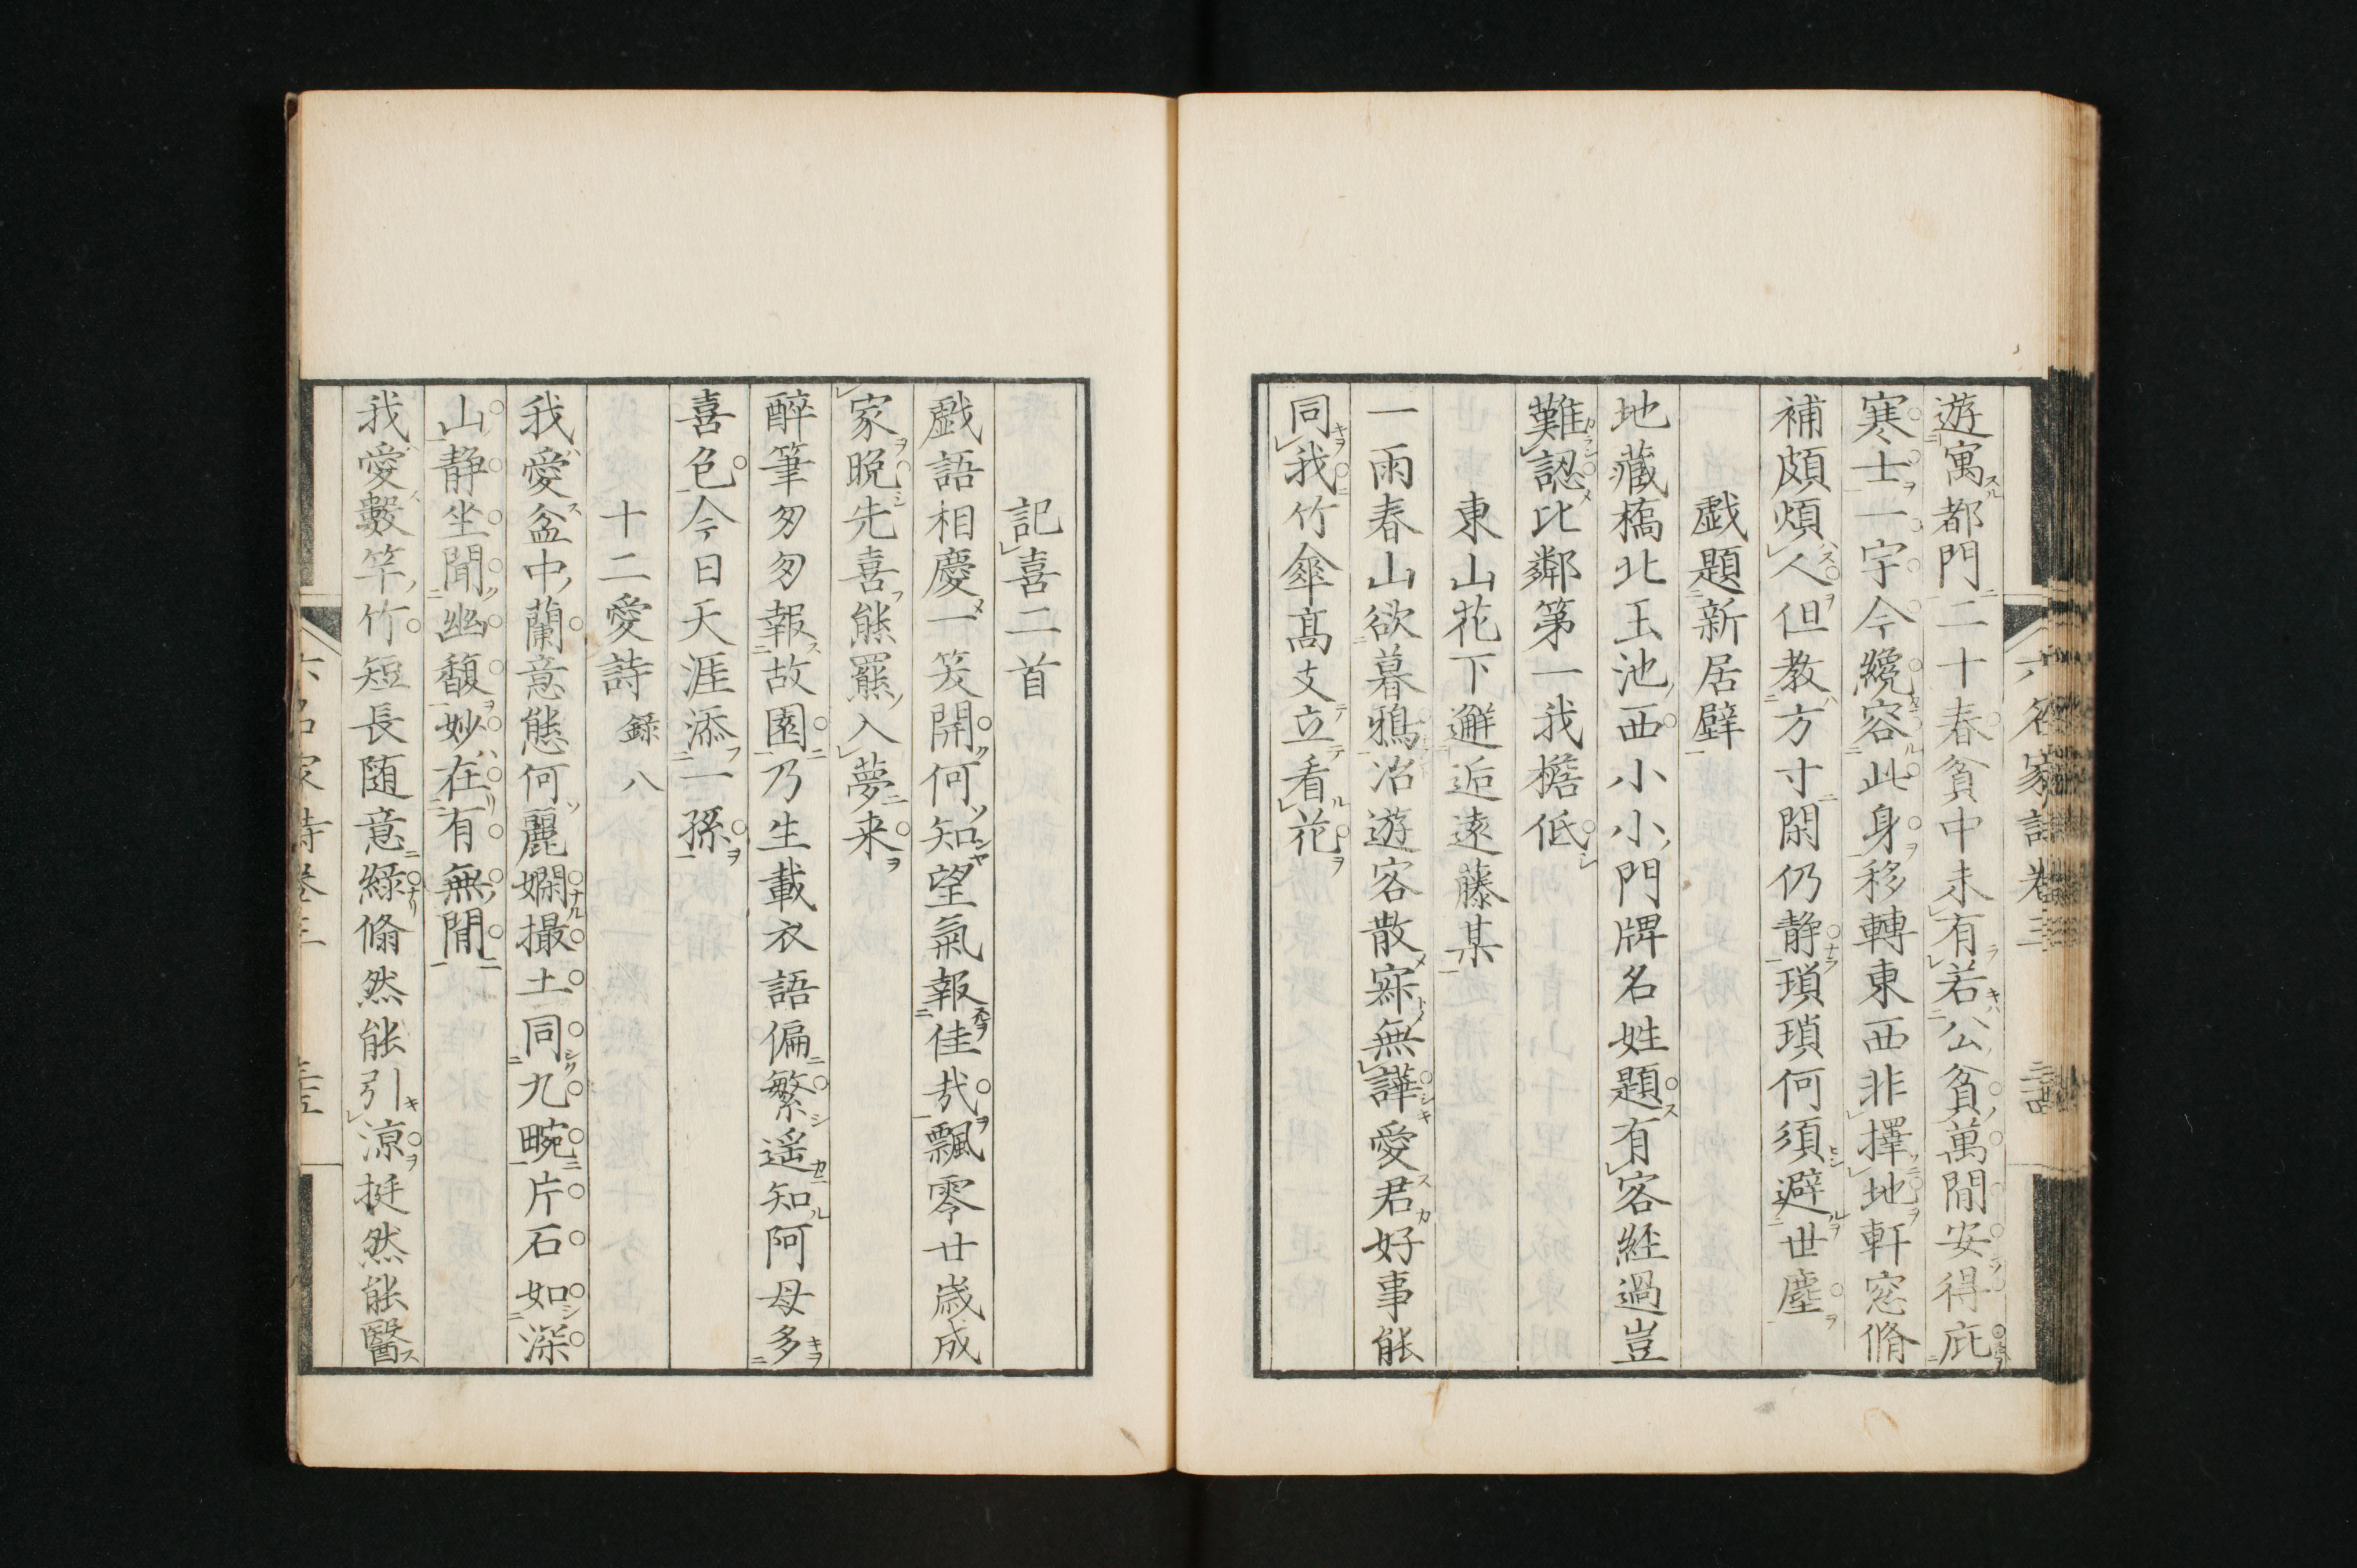 遊寓都門二十春貧中未有若公貧萬間安得庇
寒士一宇今纔容此身移轉東西非擇地軒窓脩
補頗煩人但教方寸閑仍静瑣瑣何須避世塵
戯題新居壁
地藏橋北玉池西小小門牌名姓題有客経過豈
難認比鄰第一我檐低
東山花下邂逅遠藤某
一雨春山欲暮鴉冶遊客散寂無譁愛君好事能
同我竹傘髙支立看花
記喜二首
戯語相慶一笑開何知望氣報佳哉飄零廿歳成
家晩先喜熊羆入夢来
醉筆匆匆報故園乃生載衣語偏繁遥知阿母多
喜色今日天涯添一孫
十二愛詩 録八
我愛盆中蘭意態何麗嫺撮土同九畹片石如深
山静坐聞幽馥妙在有無間
我愛數竿竹短長随意綠翛然能引涼挺然能醫